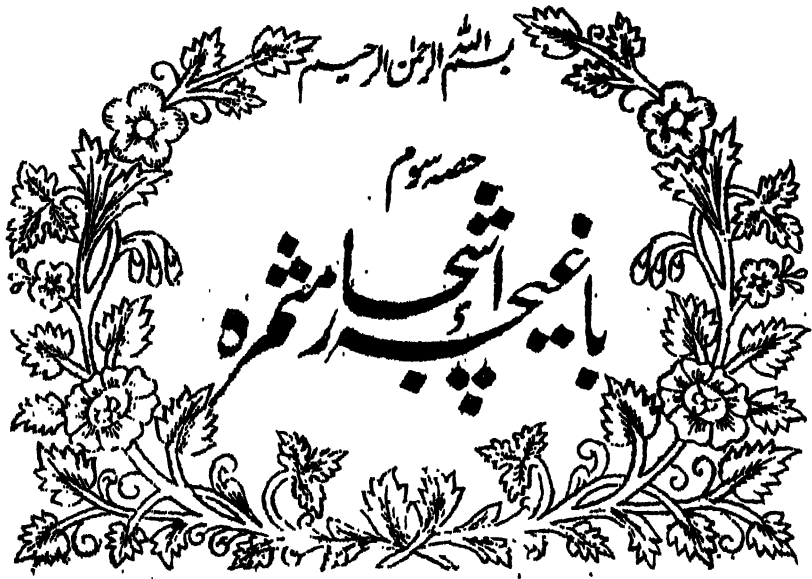 بسم الله الرحمن الرحیم
حصہ سوم
باغیچۂ اشجار مثمرہ